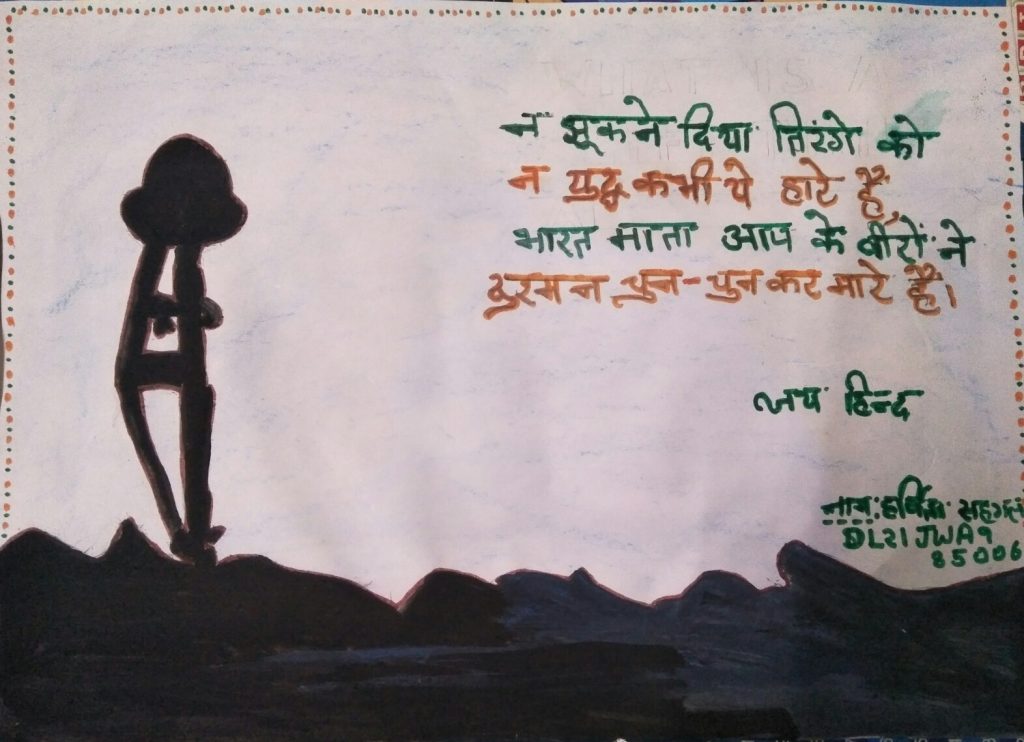 न झूकने दिया तिरंगे को
न युद्ध कभी ये हारे हैं,
भारत माता आप के वीरों ने
दुश्मन चुन-चुन कर मारे हैं।
जय हिन्द
नाम: सहगल
DL21JWA9
85006